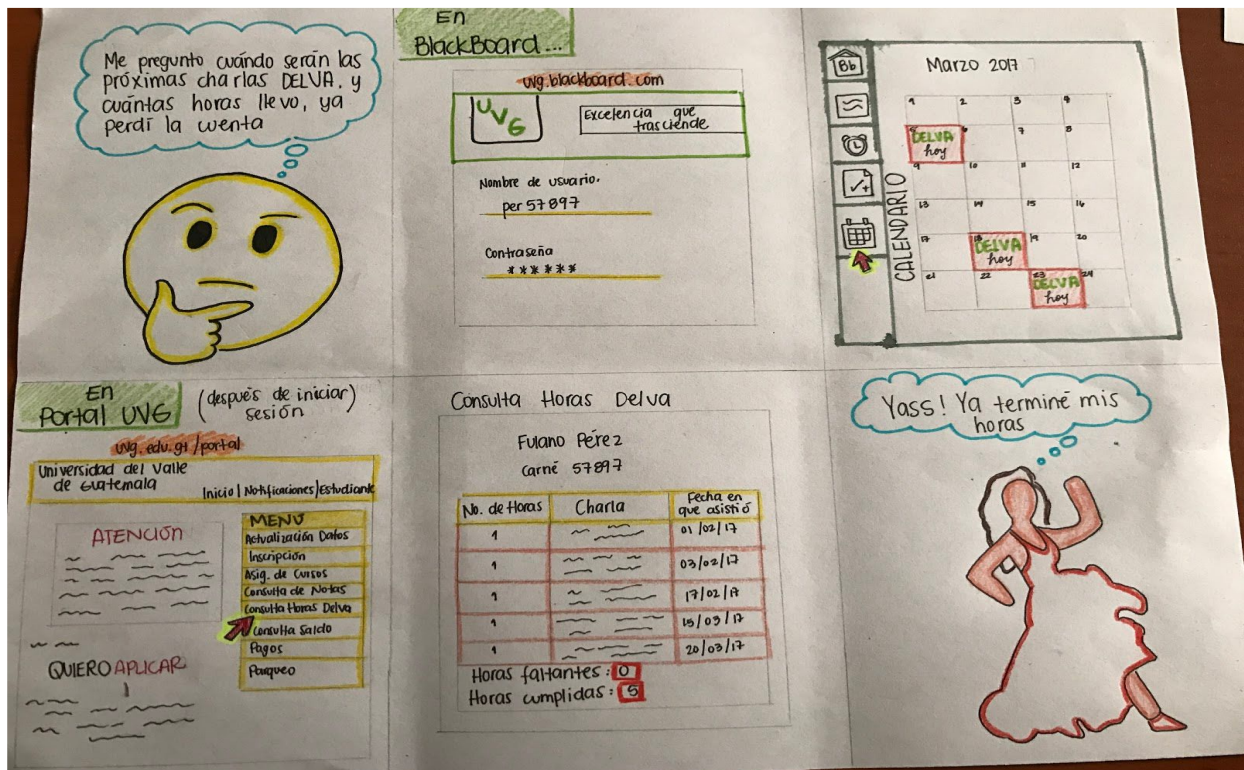 Me pregunto cuándo serán las
próximas charlas DELVA, y
cuántas horas llevo, ya
perdí la cuenta
En
BlackBoard...
uvg.blackboard.com
UVG
Excelencia que
trasciende
Nombre de usuario.
per 57897
Contraseña
******
Bb
Marzo 2017
CALENDARIO
1 2 3 4
5 DELVA hoy 6 7 8
9 10 11 12
13 14 15 16
17 18 DELVA hoy 19 20
21 22 23 DELVA hoy 24
En
Portal UVG
(después de iniciar)
sesión
uvg.edu.gt/portal
Universidad del Valle
de Guatemala
Inicio | Notificaciones | Estudiante
ATENCIÓN
QUIERO APLICAR
MENÚ
Actualización Datos
Inscripción
Asig. de Cursos
Consulta de Notas
Consulta Horas Delva
Consulta Saldo
Pagos
Parqueo
Consulta Horas Delva
Fulano Pérez
Carné 57897
No. de Horas Charla Fecha en que asistió
1 01/02/17
1 03/02/17
1 17/02/17
1 15/03/17
1 20/03/17
Horas faltantes: 0
Horas cumplidas: 5
Yass! Ya terminé mis
horas